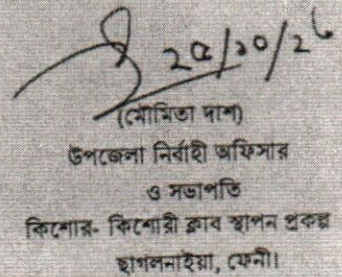 ২৫/১০/২৬
(মৌমিতা দাশ)
উপজেলা নির্বাহী অফিসার
ও সভাপতি
কিশোর- কিশোরী ক্লাব স্থাপন প্রকল্প
ছাগলনাইয়া, ফেনী।